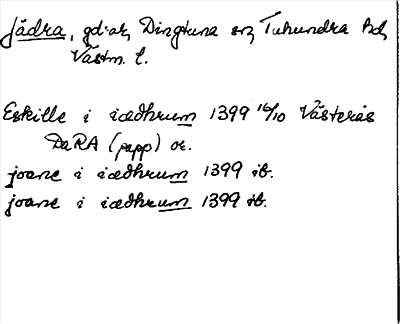 Jädra, gd:ar, Dingtuna sn, Tuhundra hd,
Västm. l.
Eskille i iædhrum 1399 16/10 Västerås
DaRA (papp) or.
joane i iædhrum 1399 ib.
joane i iædhrum 1399 ib.